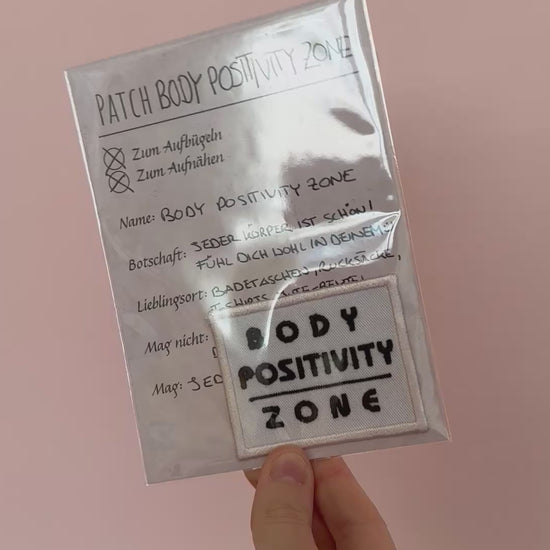 PATCH BODY POSITIVITY ZONE
Zum Aufbügeln
Zum Aufnähen
Name: BODY POSITIVITY ZONE
Botschaft: JEDER KÖRPER IST SCHÖN!
FÜHL DICH WOHL IN DEINEM
Lieblingsort: BADETASCHEN, RUCKSÄCKE,
Mag nicht:
Mag: JED
BODY
POSITIVITY
ZONE